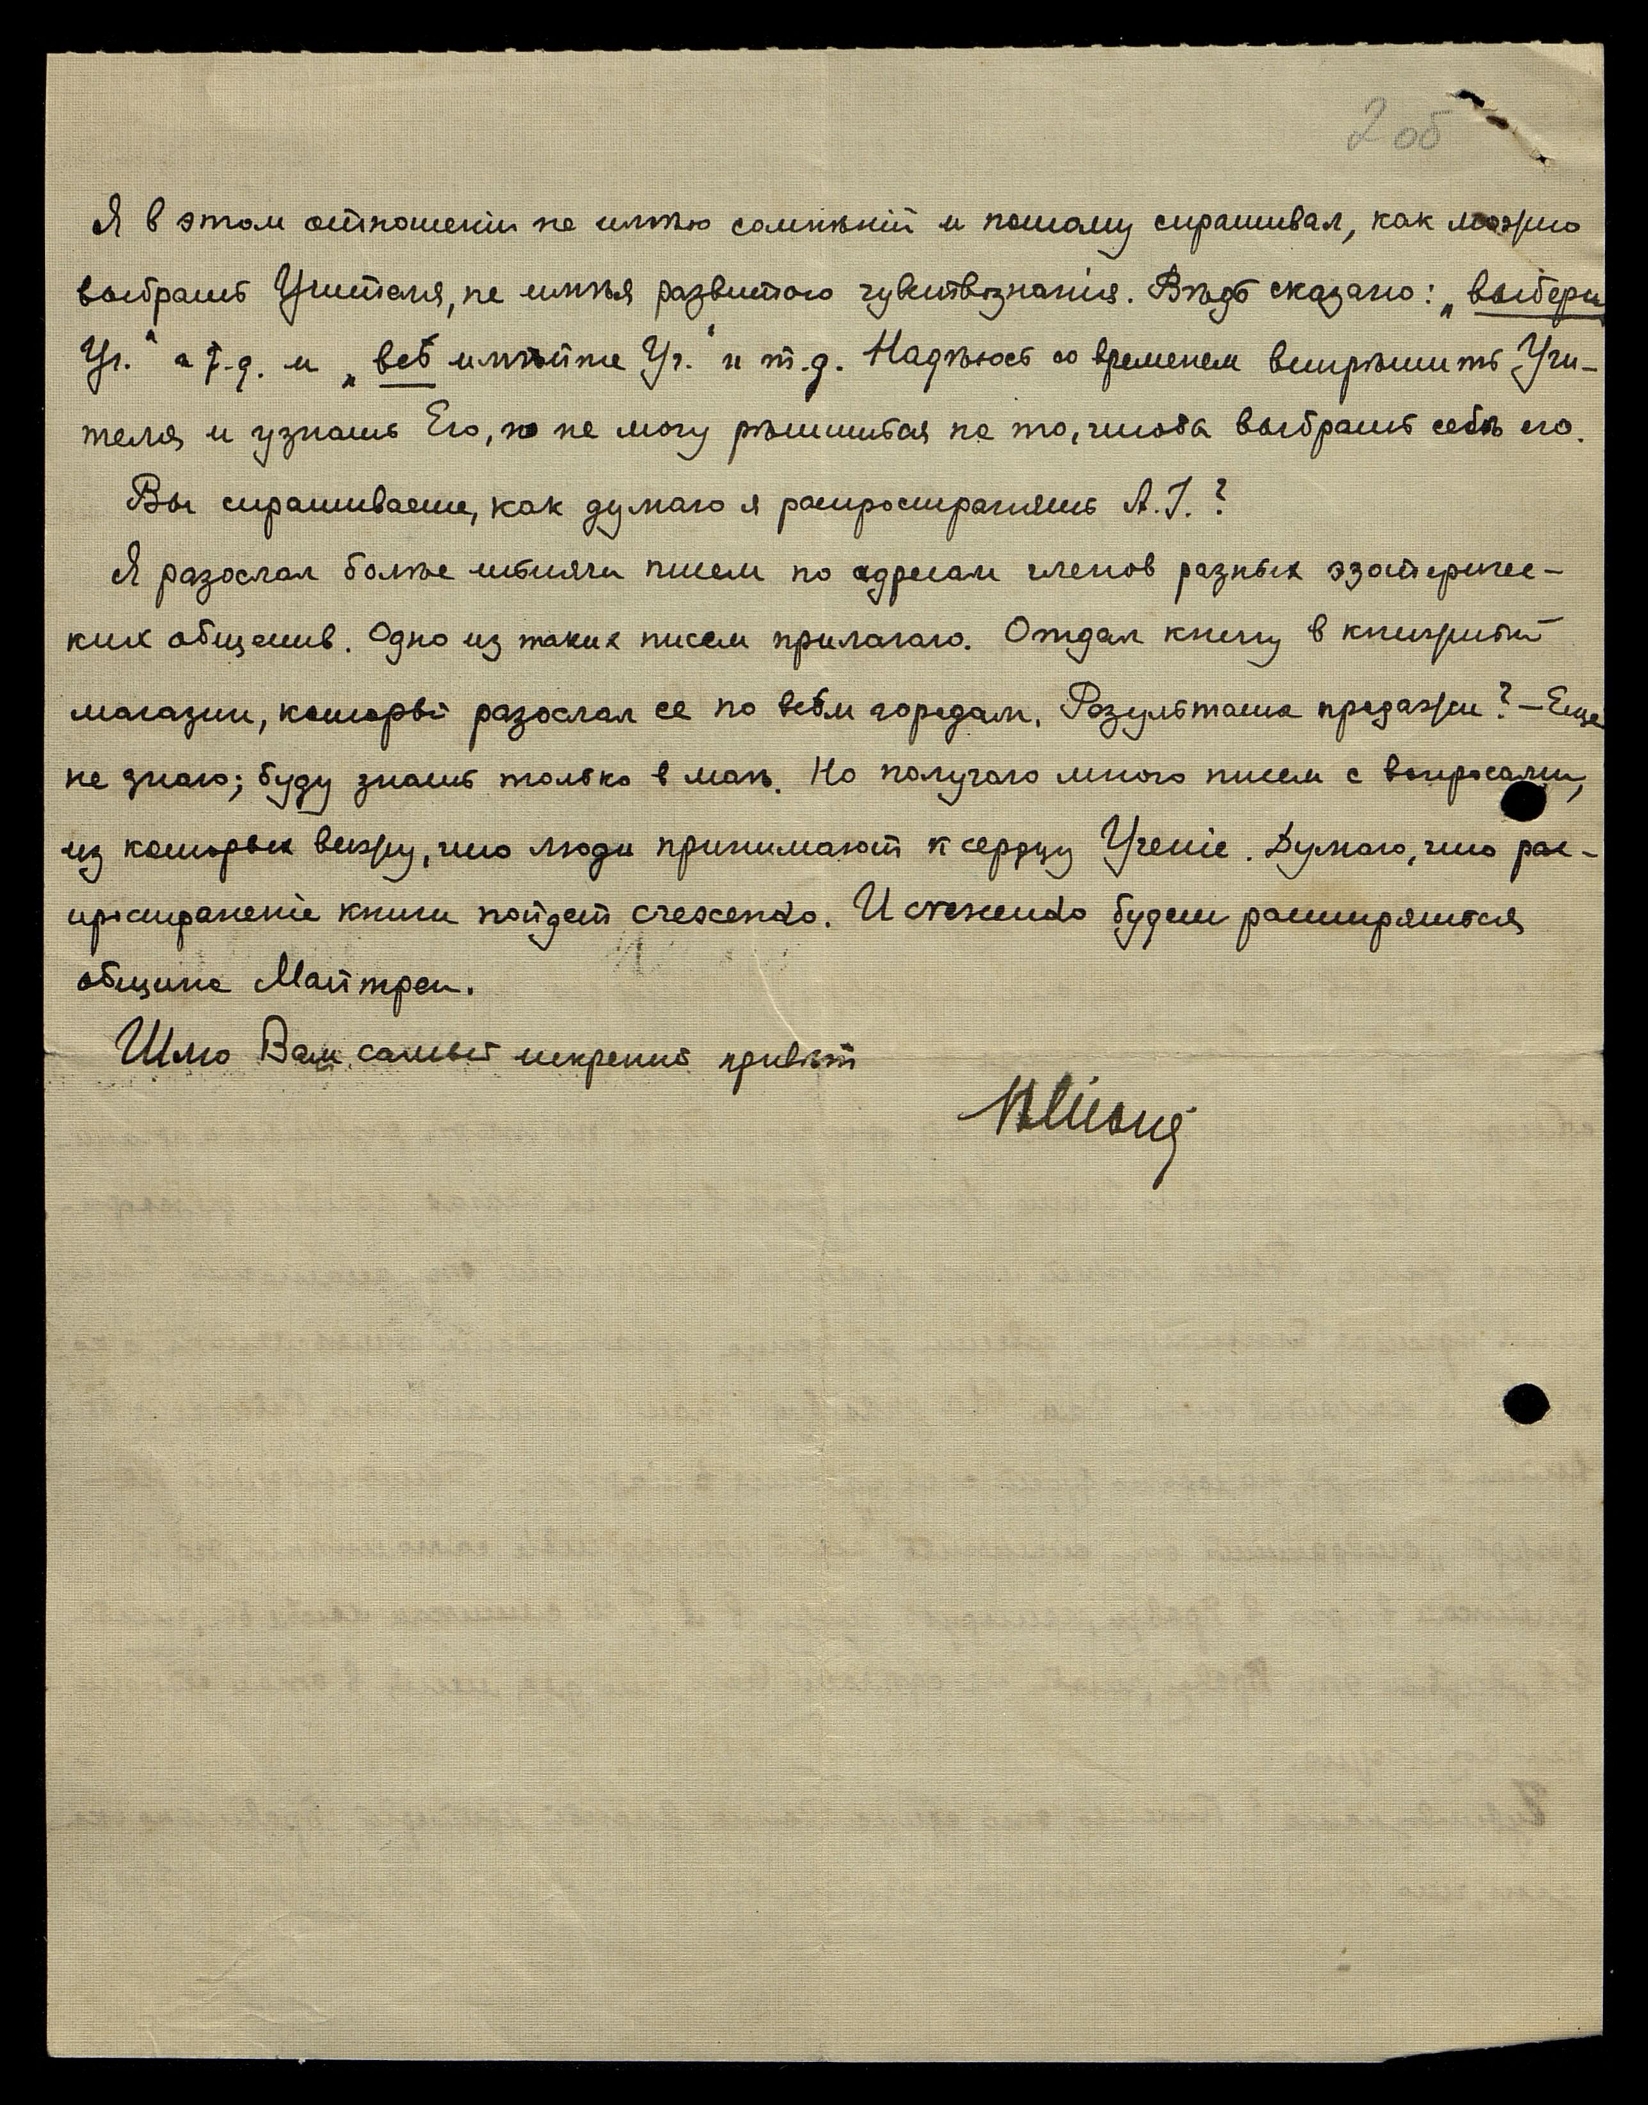 2 об
Я в этом отношеніи не имѣю сомнѣній и потому спрашивал, как можно
выбрать Учителя, не имѣя развитого чувствознанія. Вѣдь сказано: „выбери
Уч." и т.д. и „всѣ имѣйте Уч." и т.д. Надѣюсь со временем встрѣтить Учи-
теля и узнать Его, но не могу рѣшиться на то, чтобы выбрать себѣ его.
Вы спрашиваете, как думаю я распространять А.І.?
Я разослал болѣе тысячи писем по адресам членов разных эзотеричес-
ких обществ. Одно из таких писем прилагаю. Отдал книгу в книжный
магазин, который разослал ее по всѣм городам. Результаты продажи? — Еще
не знаю; буду знать только в маѣ. Но получаю много писем с вопросами,
из которых вижу, что люди принимают к сердцу Ученіе. Думаю, что рас-
пространеніе книги пойдет crescendo. И crescendo будет расширяться
община Майтреи.
Шлю Вам самый искрений привѣт